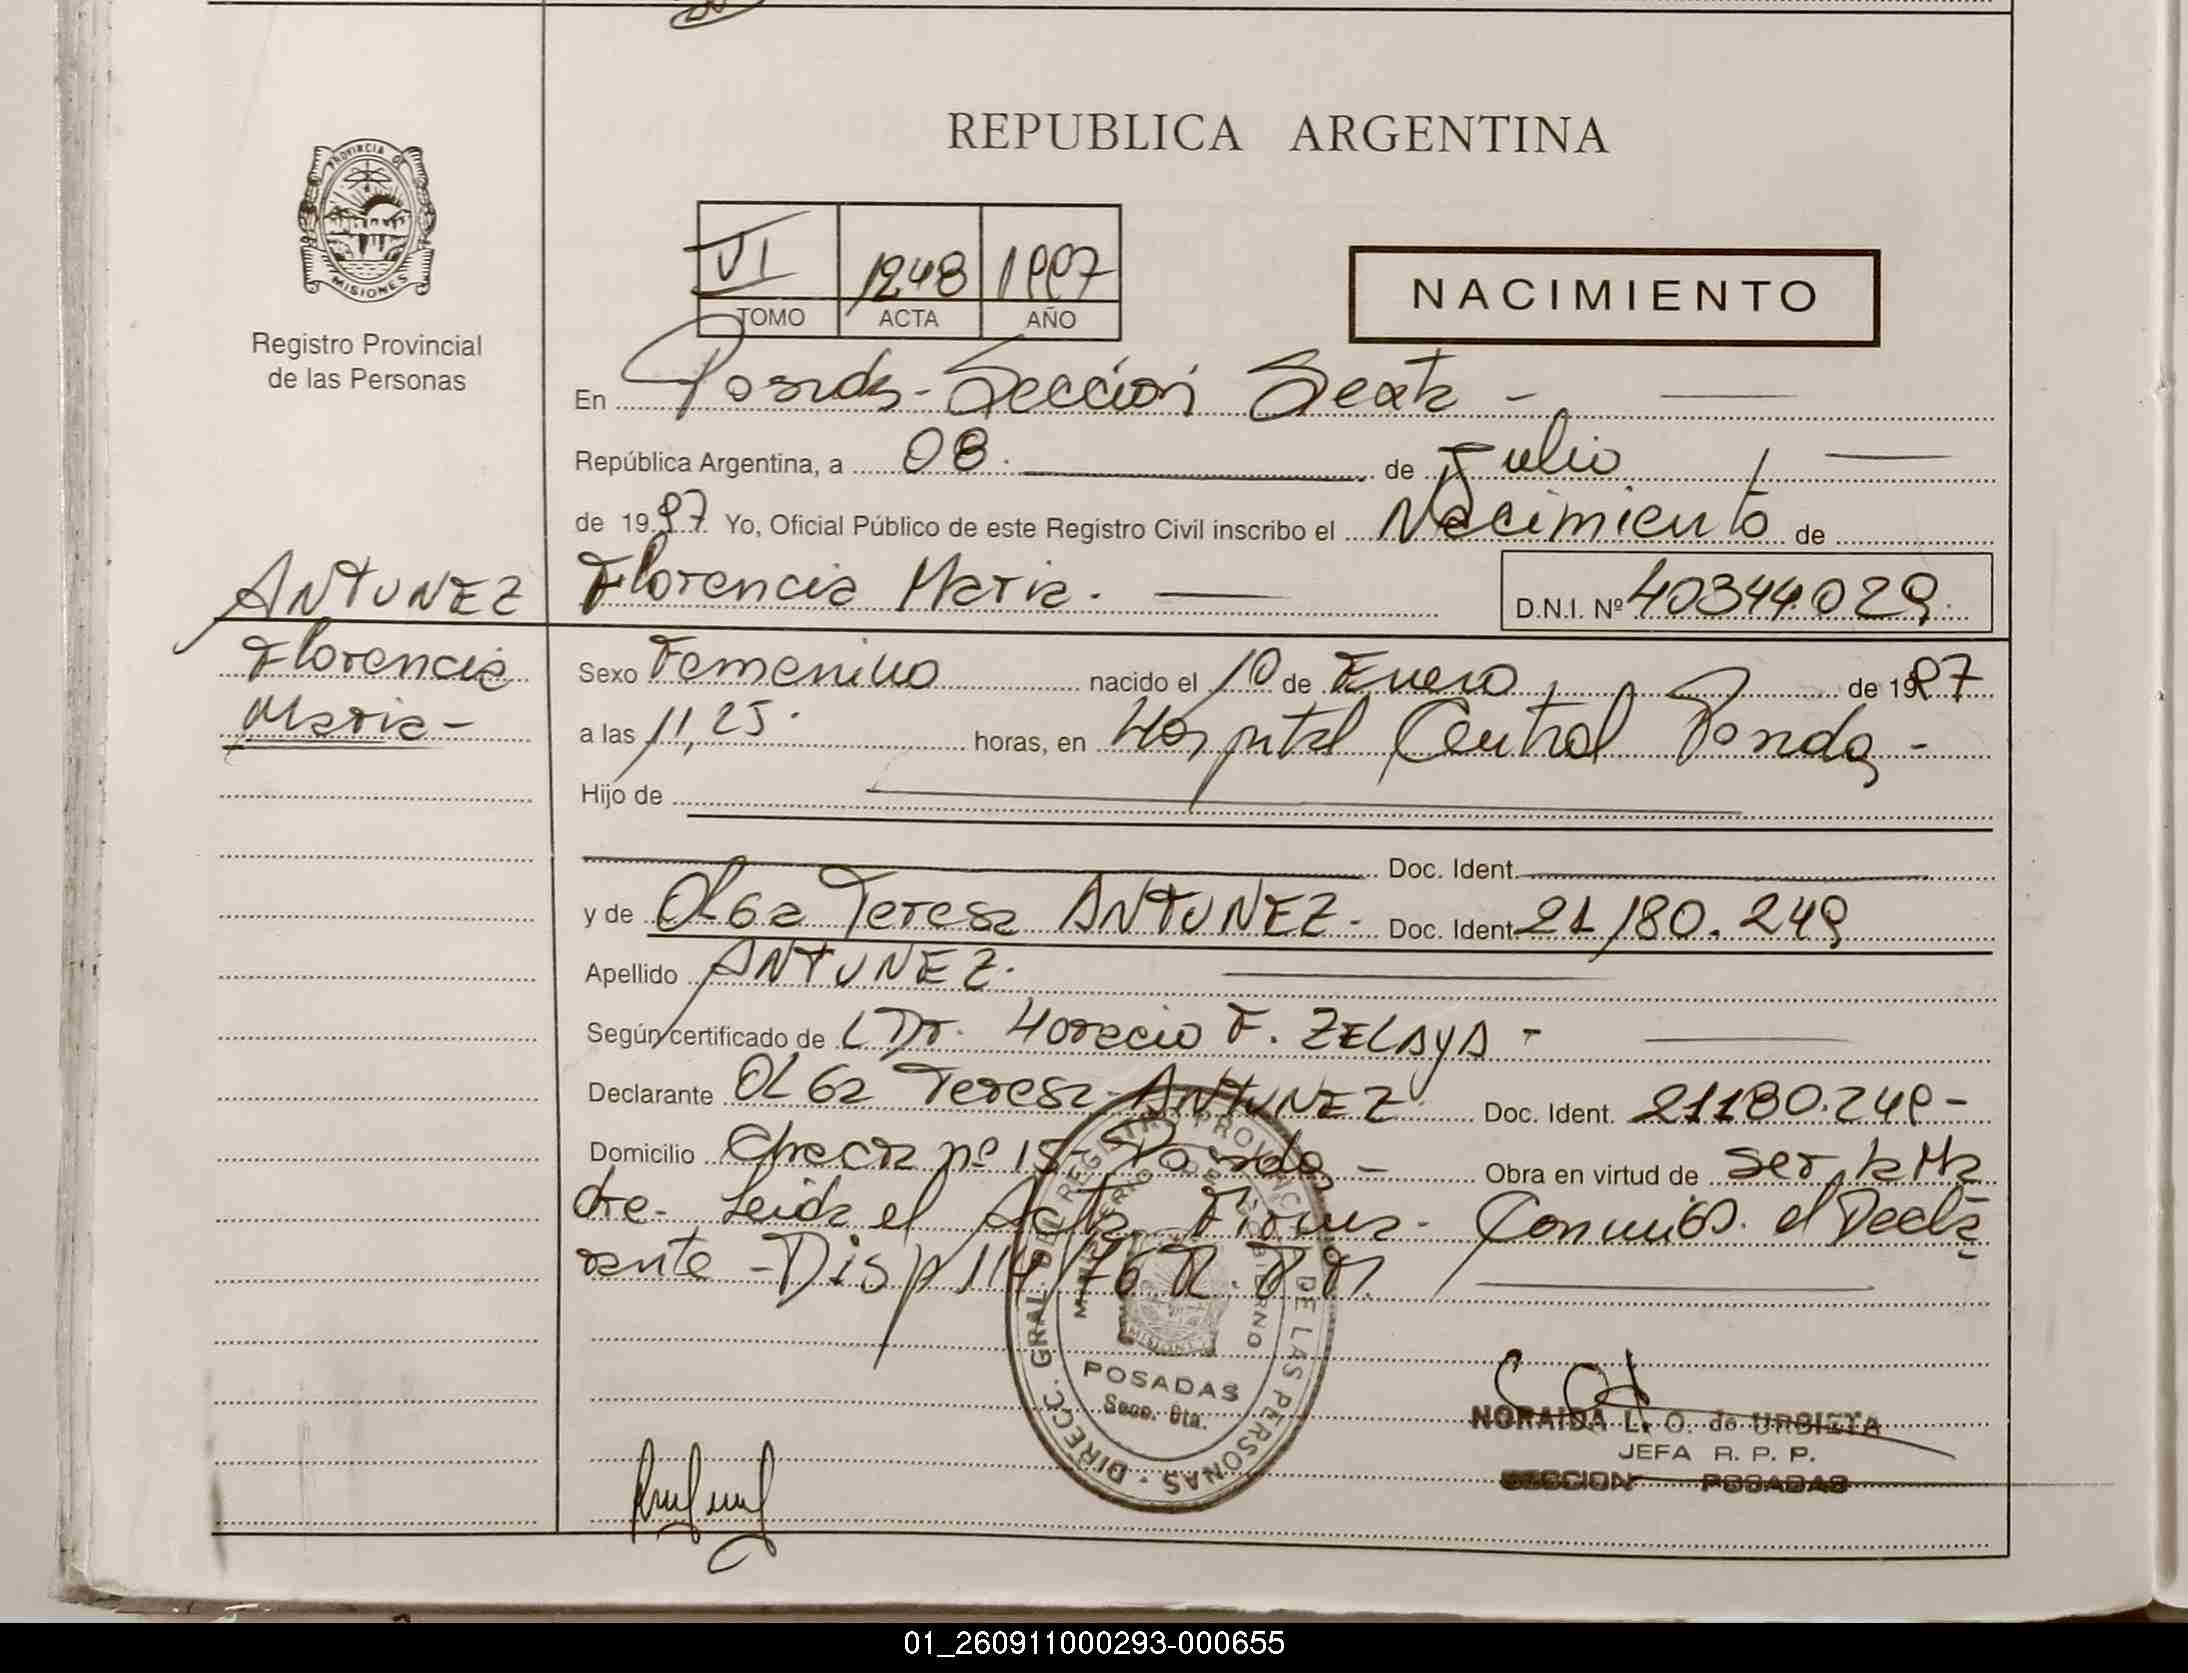 REPUBLICA ARGENTINA
PROVINCIA DE
MISIONES
Registro Provincial
de las Personas
VI 1248 1997
TOMO ACTA AÑO
NACIMIENTO
En Posadas - Sección Sexta -
República Argentina, a 08. de Julio
de 1997. Yo, Oficial Público de este Registro Civil inscribo el Nacimiento de
ANTUNEZ
Florencia
Maria -
Florencia Maria. D.N.I. Nº 40344.029.
Sexo Femenino nacido el 10 de Enero de 1997
a las 11,25. horas, en Hospital Central Posadas -
Hijo de
Doc. Ident.
y de OLGa Teresa ANTUNEZ - Doc. Ident. 21180.249
Apellido ANTUNEZ.
Según certificado de Dr. Horacio F. ZELAYA -
Declarante OLGa Teresa ANTUNEZ Doc. Ident. 21180.249 -
Domicilio Chacra nº 15 - Posadas - Obra en virtud de ser la Ma
dre - Leida el Acta Firma - Conmigo. el Decla
rante - Disp 114/76
DIRECC. GRAL. DEL REGISTRO PROVINCIAL DE LAS PERSONAS
MINISTERIO DE GOBIERNO
MISIONES
POSADAS
Secc. 6ta.
NORAIDA L. O. de URBIETA
JEFA R. P. P.
SECCION POSADAS
01_260911000293-000655